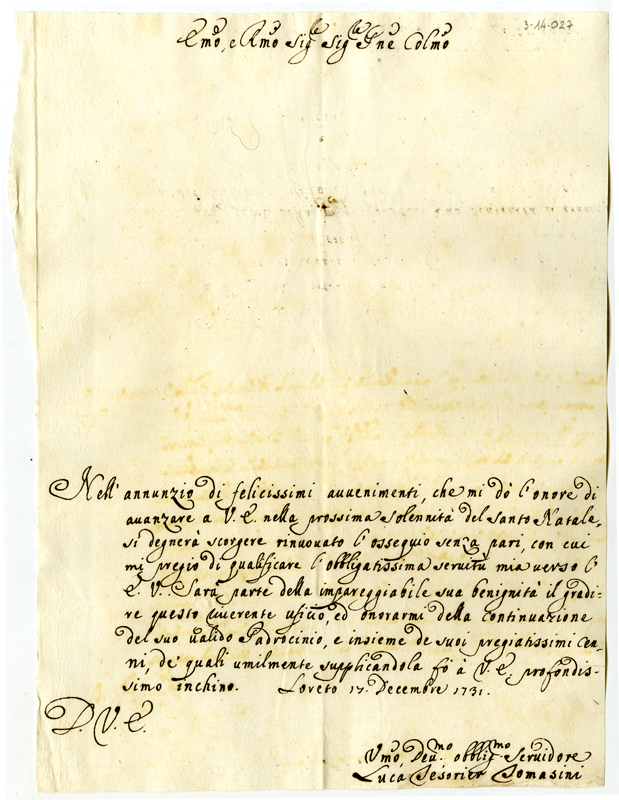 3-14-027
Emo, e Rmo Sigle Sigle Pne Colmo
Nell' annunzio di felicissimi auuenimenti, che mi dò l'onore di
auanzare a V. E. nella prossima solennità del Santo Natale,
si degnerà scorgere rinuouato l'ossequio senza pari, con cui
mi pregio di qualificare l'obbligatissima seruitù mia verso l'
E. V. Sarà parte della impareggiabile sua benignità il gradi-
re questo riuerente ufizio, ed onorarmi della continuazione
del suo ualido Padrocinio, e insieme de suoi pregiatissimi cen-
ni, de' quali umilmente supplicandola fò à V. E. profondis-
simo inchino. Loreto 17. Decembre 1731.
D. V. E.
Vmo Deumo obbligmo Seruidore
Luca Tomasini